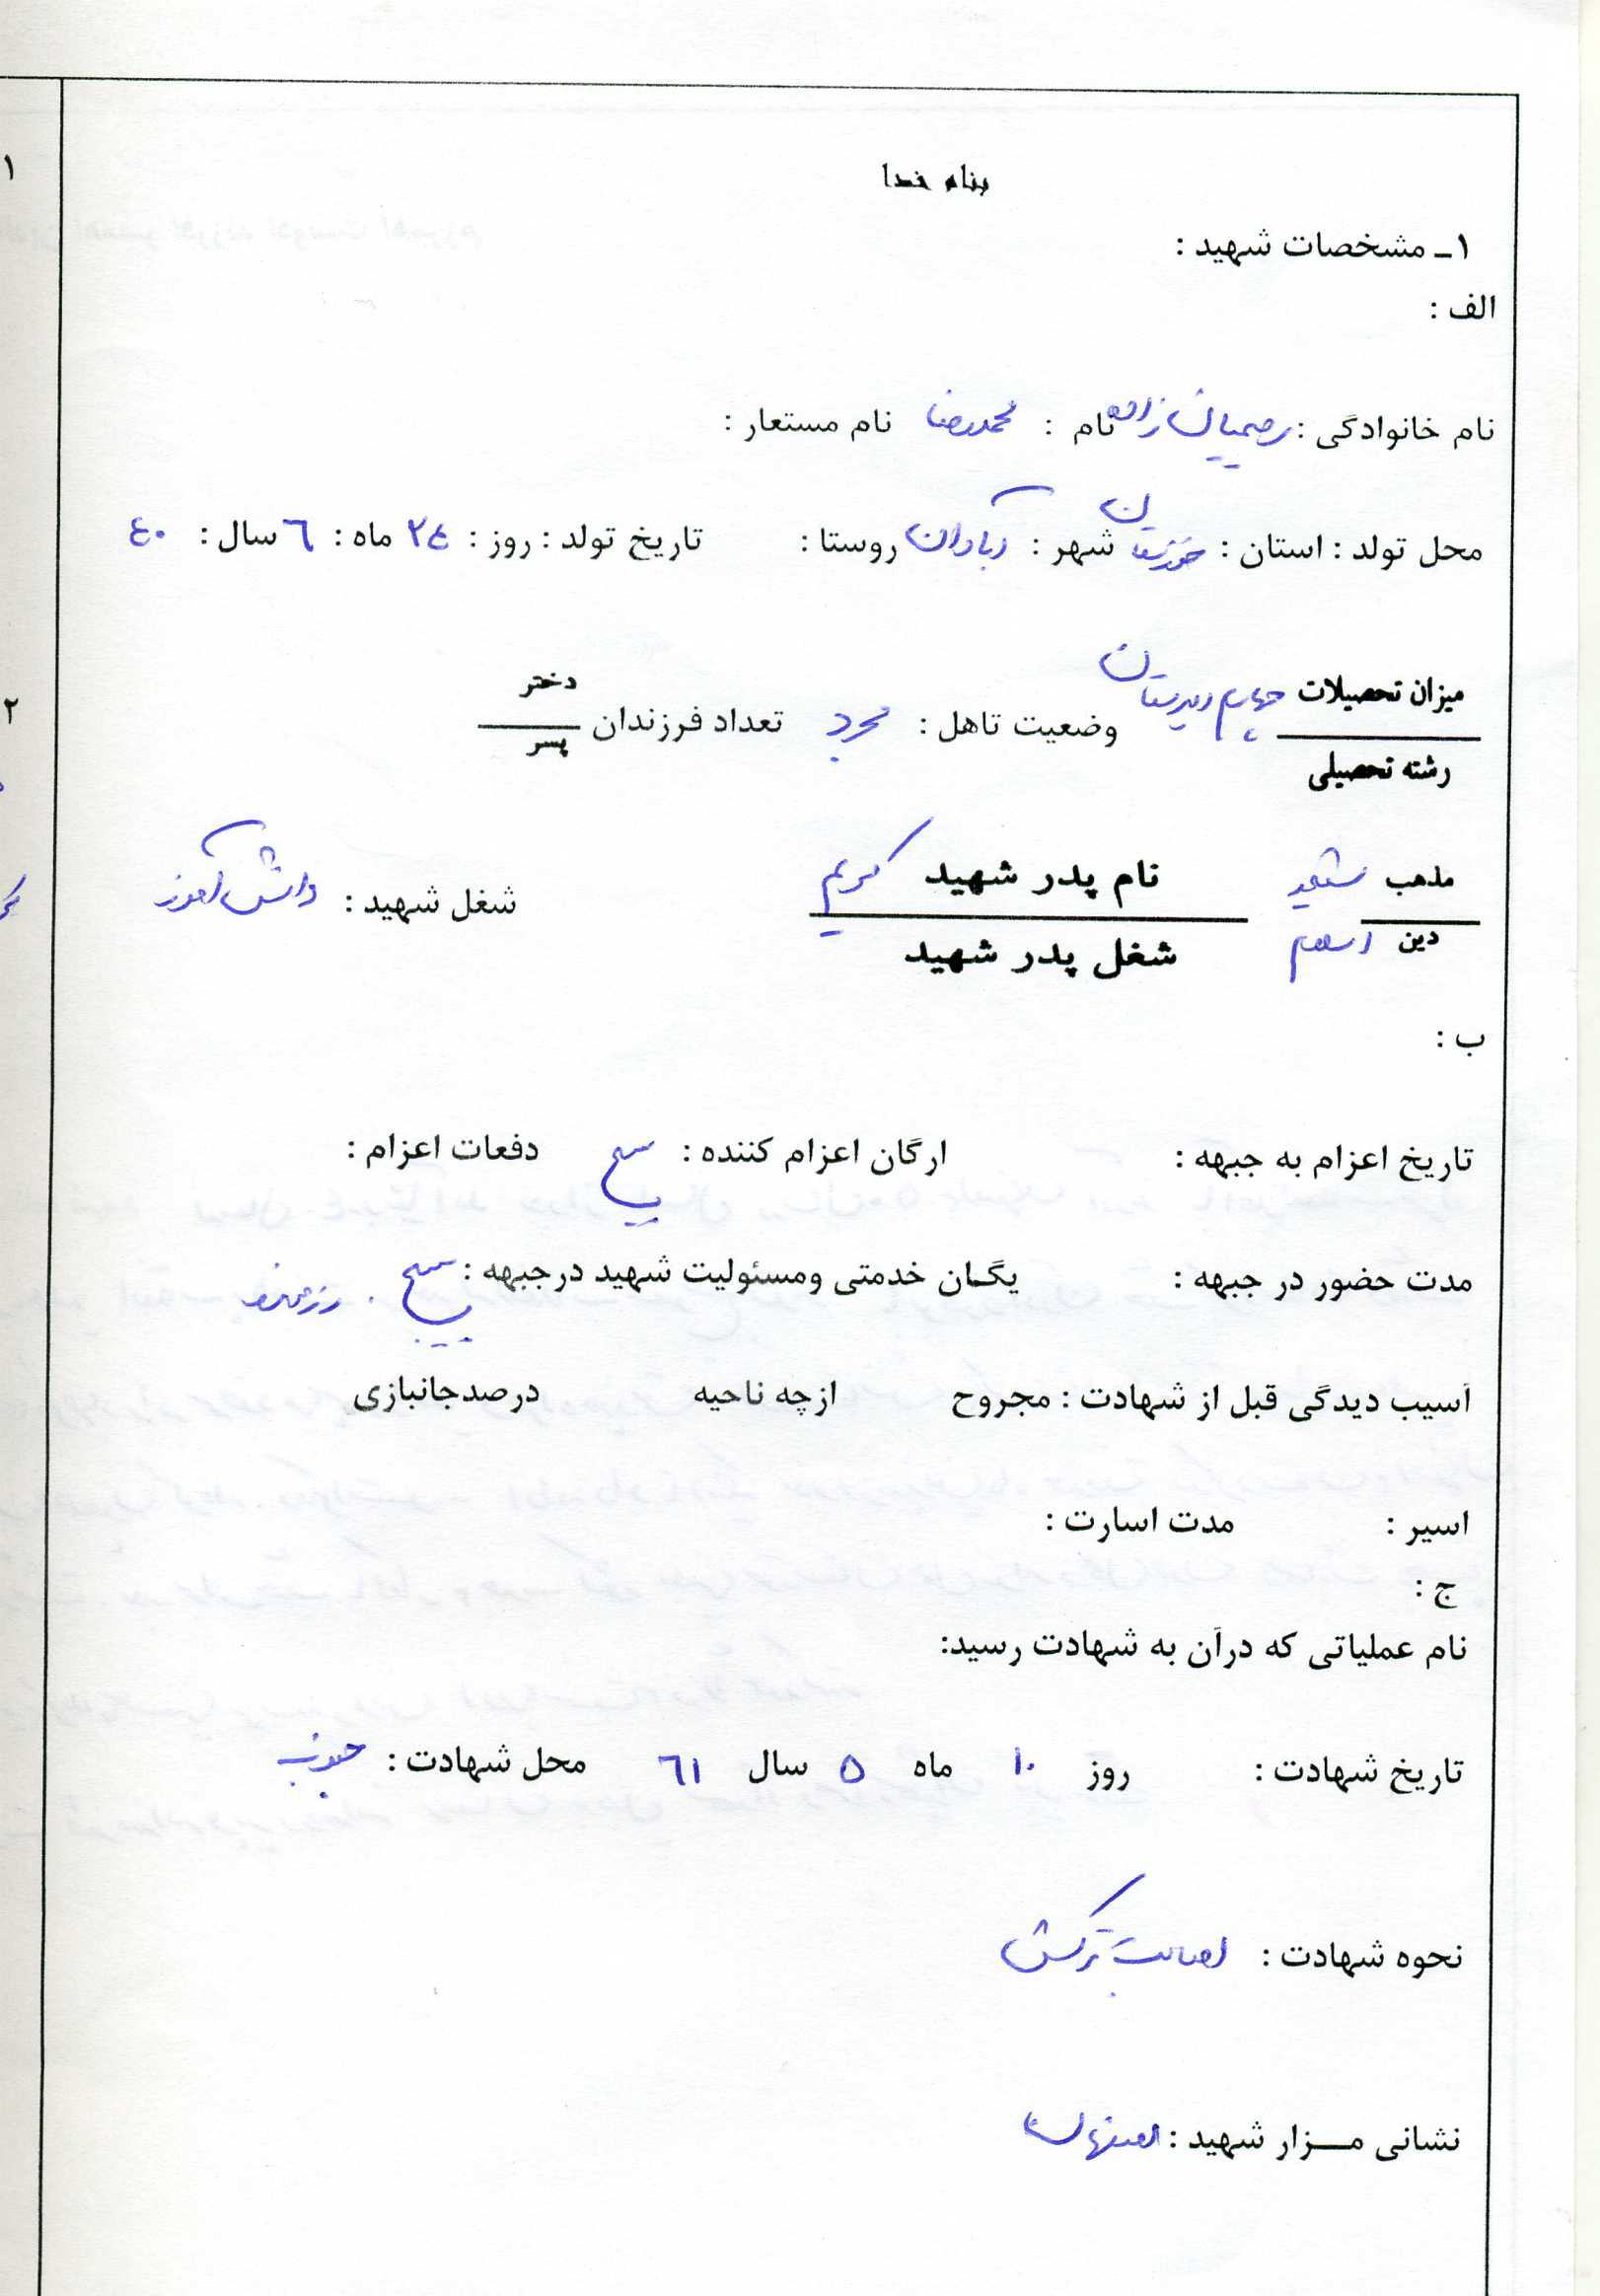 بنام خدا
۱ـ مشخصات شهید :
الف :
نام خانوادگی : رحیمیان زاده نام : محمدرضا نام مستعار :
محل تولد : استان : خوزستان شهر : آبادان روستا : تاریخ تولد : روز : ۲٤ ماه : ٦ سال : ٤۰
میزان تحصیلات چهارم دبیرستان
رشته تحصیلی
وضعیت تاهل : مجرد تعداد فرزندان دختر
پسر
مذهب شیعه
دین اسلام
نام پدر شهید کریم
شغل پدر شهید
شغل شهید : دانش آموز
ب :
تاریخ اعزام به جبهه : ارگان اعزام کننده : بسیج دفعات اعزام :
مدت حضور در جبهه : یگان خدمتی ومسئولیت شهید درجبهه : بسیج . رزمنده
آسیب دیدگی قبل از شهادت : مجروح ازچه ناحیه درصدجانبازی
اسیر : مدت اسارت :
ج :
نام عملیاتی که درآن به شهادت رسید:
تاریخ شهادت : روز ۱۰ ماه ۵ سال ٦۱ محل شهادت : جنوب
نحوه شهادت : اصابت ترکش
نشانی مـــزار شهید : اصفهان
۱
۲